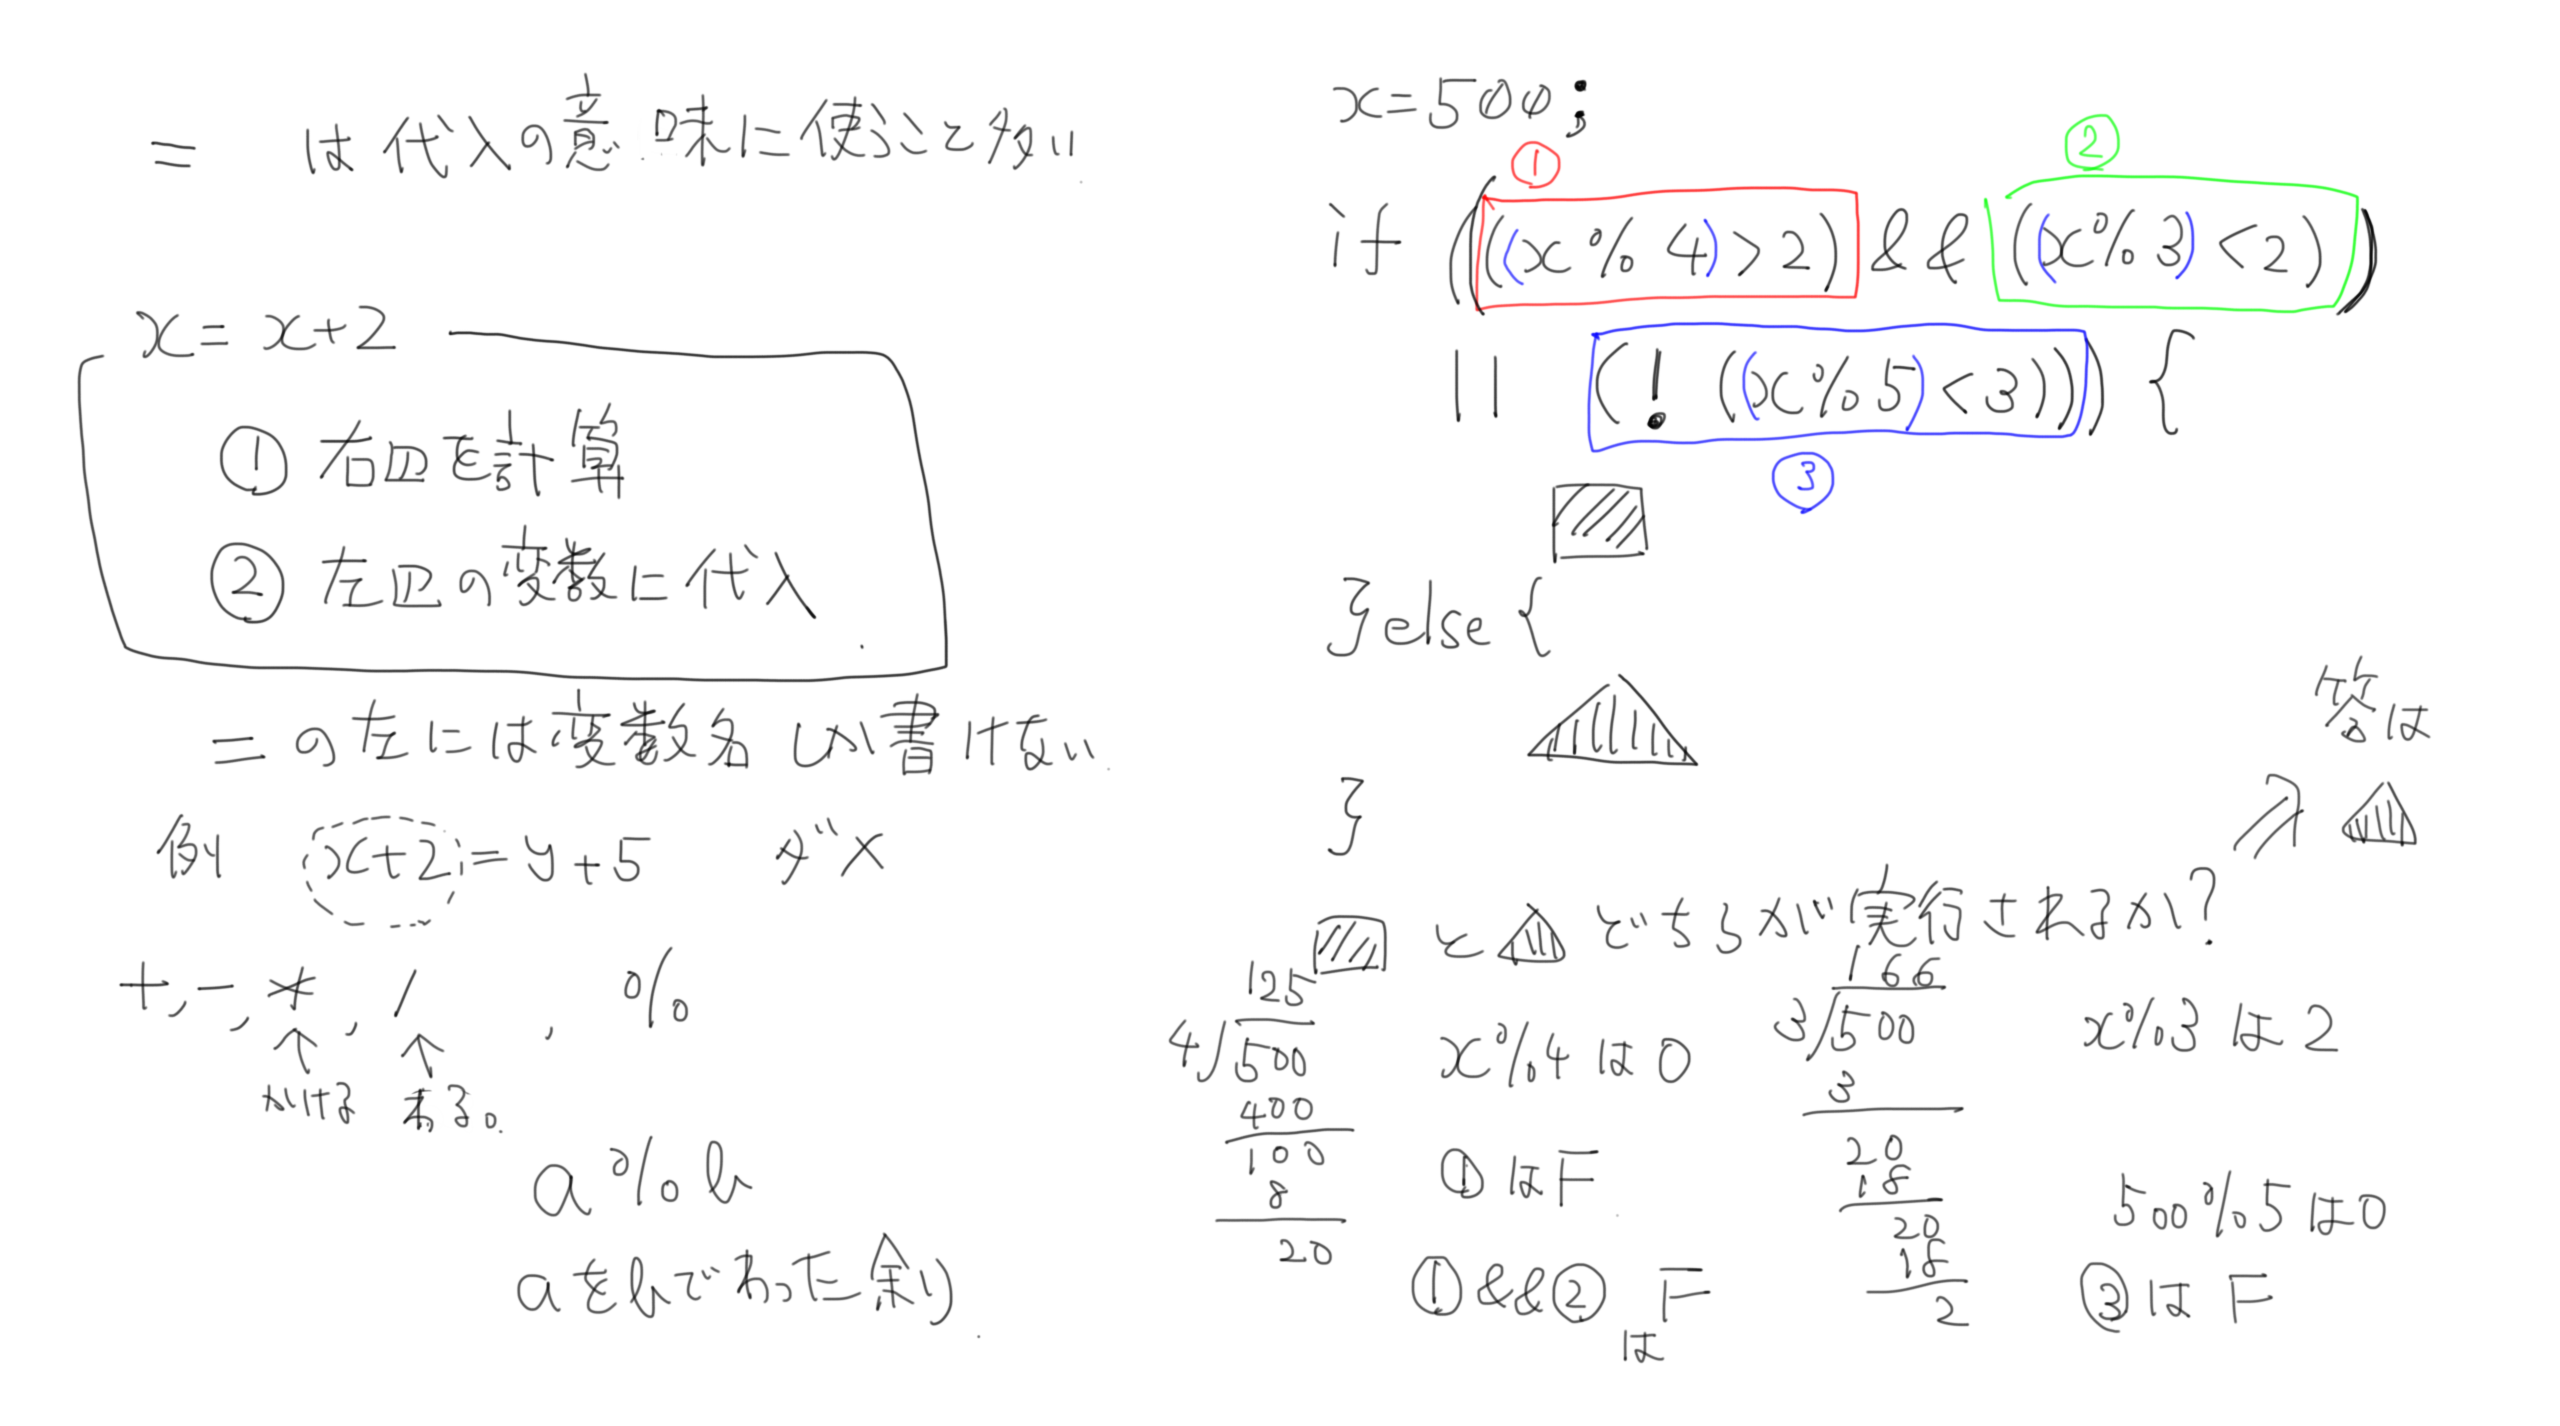 = は代入の意味に使うこと多い
x = x+2
① 右辺を計算
② 左辺の変数に代入
= の左には変数名しか書けない
例 x+2 = y+5 ダメ
+, -, *, /, %
↑ ↑
かける わる。
a % b
aをbでわった余り
x=500;
① ②
if ((((x % 4) > 2) && ((x % 3) < 2))
|| (! ((x % 5) < 3))) {
③
} else {
}
答は
⇗
と どちらが実行されるか?
125
4)500
400
100
8
20
x%4 は 0
① は F
① && ② は F
166
3)500
3
20
18
20
18
2
x%3 は 2
500%5 は 0
③ は F